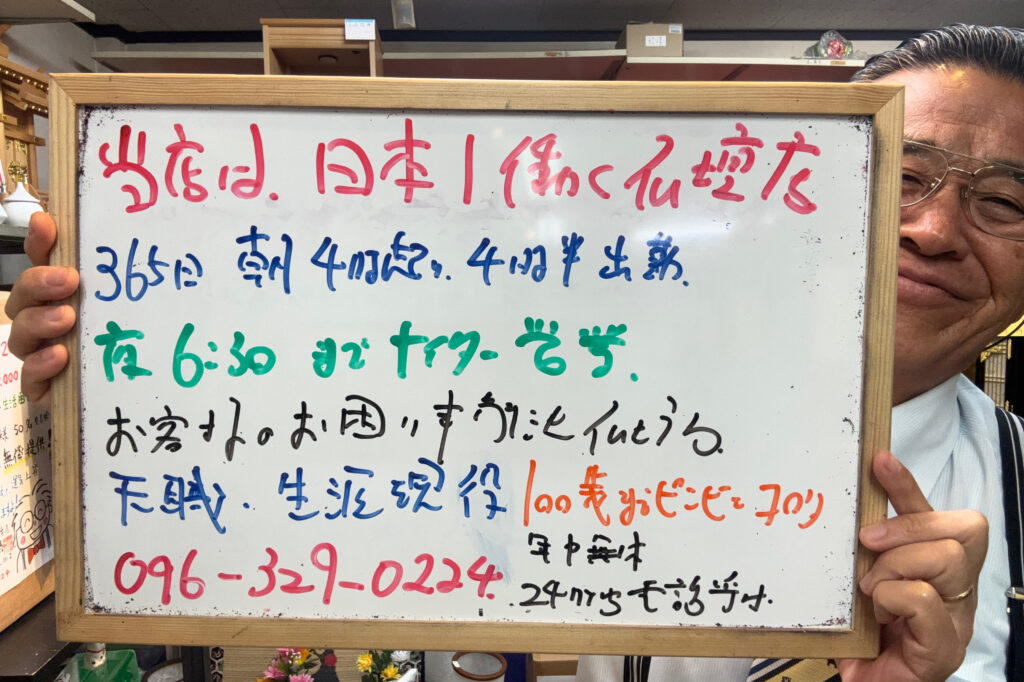 当店は、日本1働く仏壇店
365日 朝4時起き、4時半出勤、
夜6:30までナイター営業、
お客様のお困り事
天職、生涯現役
100歳までピンピンコロリ
096-329-0224
年中無休
24時間電話
000
生活
様50名
無償提供!